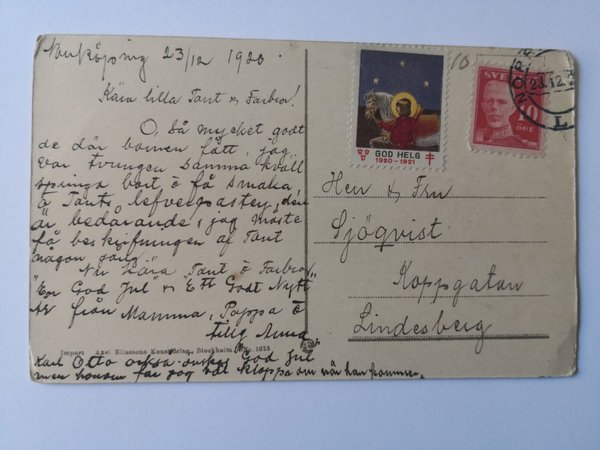 Norrköping 23/12 1920
Kära lilla Tant & Farbror!
O, så mycket godt
de där barnen fått, jag
var tvungen samma kväll
springa bort o få smaka
å Tants lefverpastey, den
är bedårande, jag måste
få beskrifningen af Tant
någon gång.
Nu kära Tant o Farbror
"En God Jul" & Ett Godt Nytt"
År från Mamma, Pappa o
Import Axel Eliassons Konstförlag, Stockholm 1053
Karl Otto också önskar God Jul
men honom får jag väl kloppa om när han kommer.
GOD HELG
1920-1921
SVERIGE
10
ÖRE
23.12.2
L
Herr & Fru
Sjöqvist
Koppgatan
Lindesberg